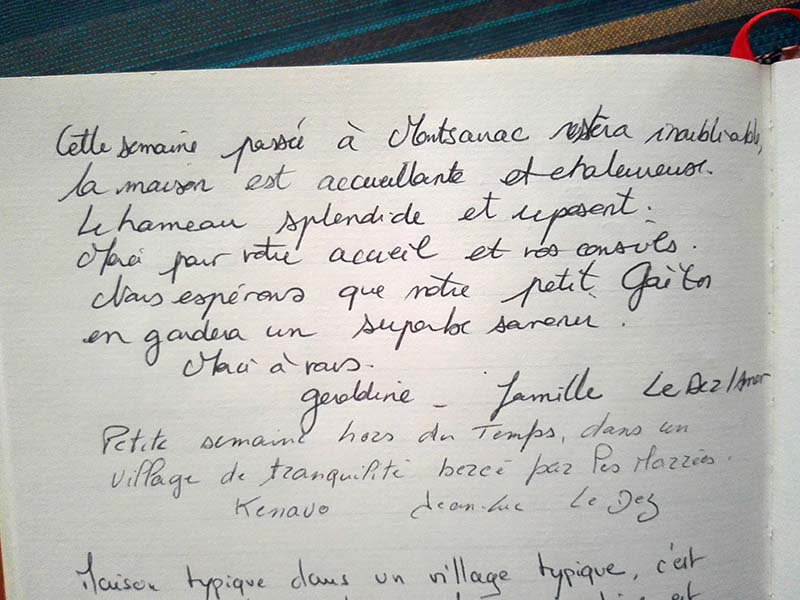 Cette semaine passée à Montsanac restera inoubliable,
la maison est accueillante et chaleureuse.
Le hameau splendide et reposent.
Merci pour votre accueil et vos conseils.
Nous espérons que notre petit Gaëtan
en gardera un superbe souvenir.
Merci à vous.
Geraldine - famille Le Dez/
Petite semaine hors du Temps, dans un
village de tranquilité bercé par les
Kenavo Jean-Luc Le Dez
Maison typique dans un village typique, c'est
est